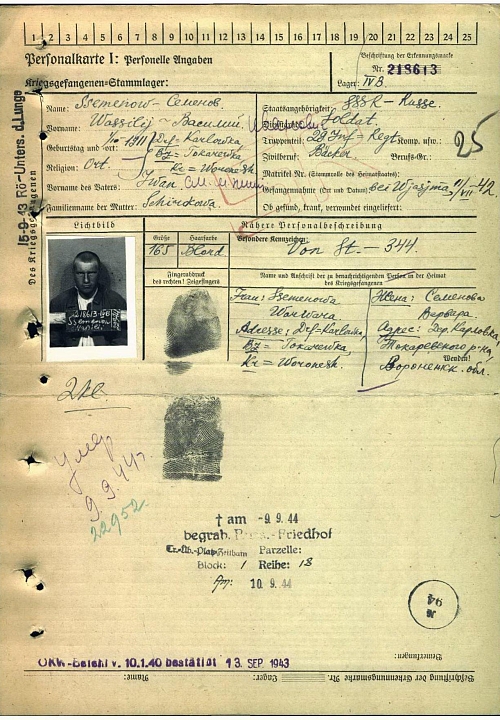 1 2 3 4 5 6 7 8 9 10 11 12 13 14 15 16 17 18 19 20 21 22 23 24 25
Personalkarte I: Personelle Angaben
Beschriftung der Erkennungsmarke
Nr. 218613
Kriegsgefangenen-Stammlager:
Lager: IV B.
15-9-43 Rö-Unters. d. Lunge
Des Kriegsgefangenen
Name: Ssemenow - Семенов
Vorname: Wassilij - Василий
Geburtstag und -ort: 1911 Drf=Karlowka
Bz = Tokarewka
Kr = Woronesh
Religion: Ort.
Vorname des Vaters: Iwan
Familienname der Mutter:
Staatsangehörigkeit: SSSR - Russe.
Dienstgrad: Soldat.
Truppenteil: Inf = Regt Komp. usw.:
Zivilberuf: Bäcker Berufs-Gr.:
25
Matrikel Nr. (Stammrolle des Heimatstaates):
Gefangennahme (Ort und Datum): bei Wjasjma
Ob gesund, krank, verwundet eingeliefert:
Lichtbild
Nähere Personalbeschreibung
Größe Haarfarbe Besondere Kennzeichen:
165 Blond Von St. - 344.
Fingerabdruck
des rechten Zeigefingers
Name und Anschrift der zu benachrichtigenden Person in der Heimat
des Kriegsgefangenen
Frau: Ssemenowa
Warwara
Adresse: Drf-Karlowka
Bz = Tokarewka
Kr = Woronesh.
Жена: Семенова
Варвара
Адрес: Дер. Карловка,
Токаревского р-на,
Воронежск. обл.
Wenden!
218613-IVB
умер
9.9.44г.
22952
† am - 9. 9. 44
begrab. Friedhof
Parzelle:
Block: 1 Reihe: 18
10. 9. 44
94
OKW-Befehl v. 10.1.40 bestätigt 13. SEP. 1943
Bemerkungen:
Beschriftung der Erkennungsmarke Nr.
Lager:
Name: